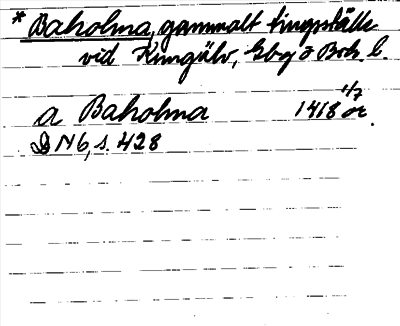 * Baholma, gammalt tingställe
vid Kungälv, Gbg o Boh. l.
a Baholma 1418 1/7 or.
DN 6, s. 428